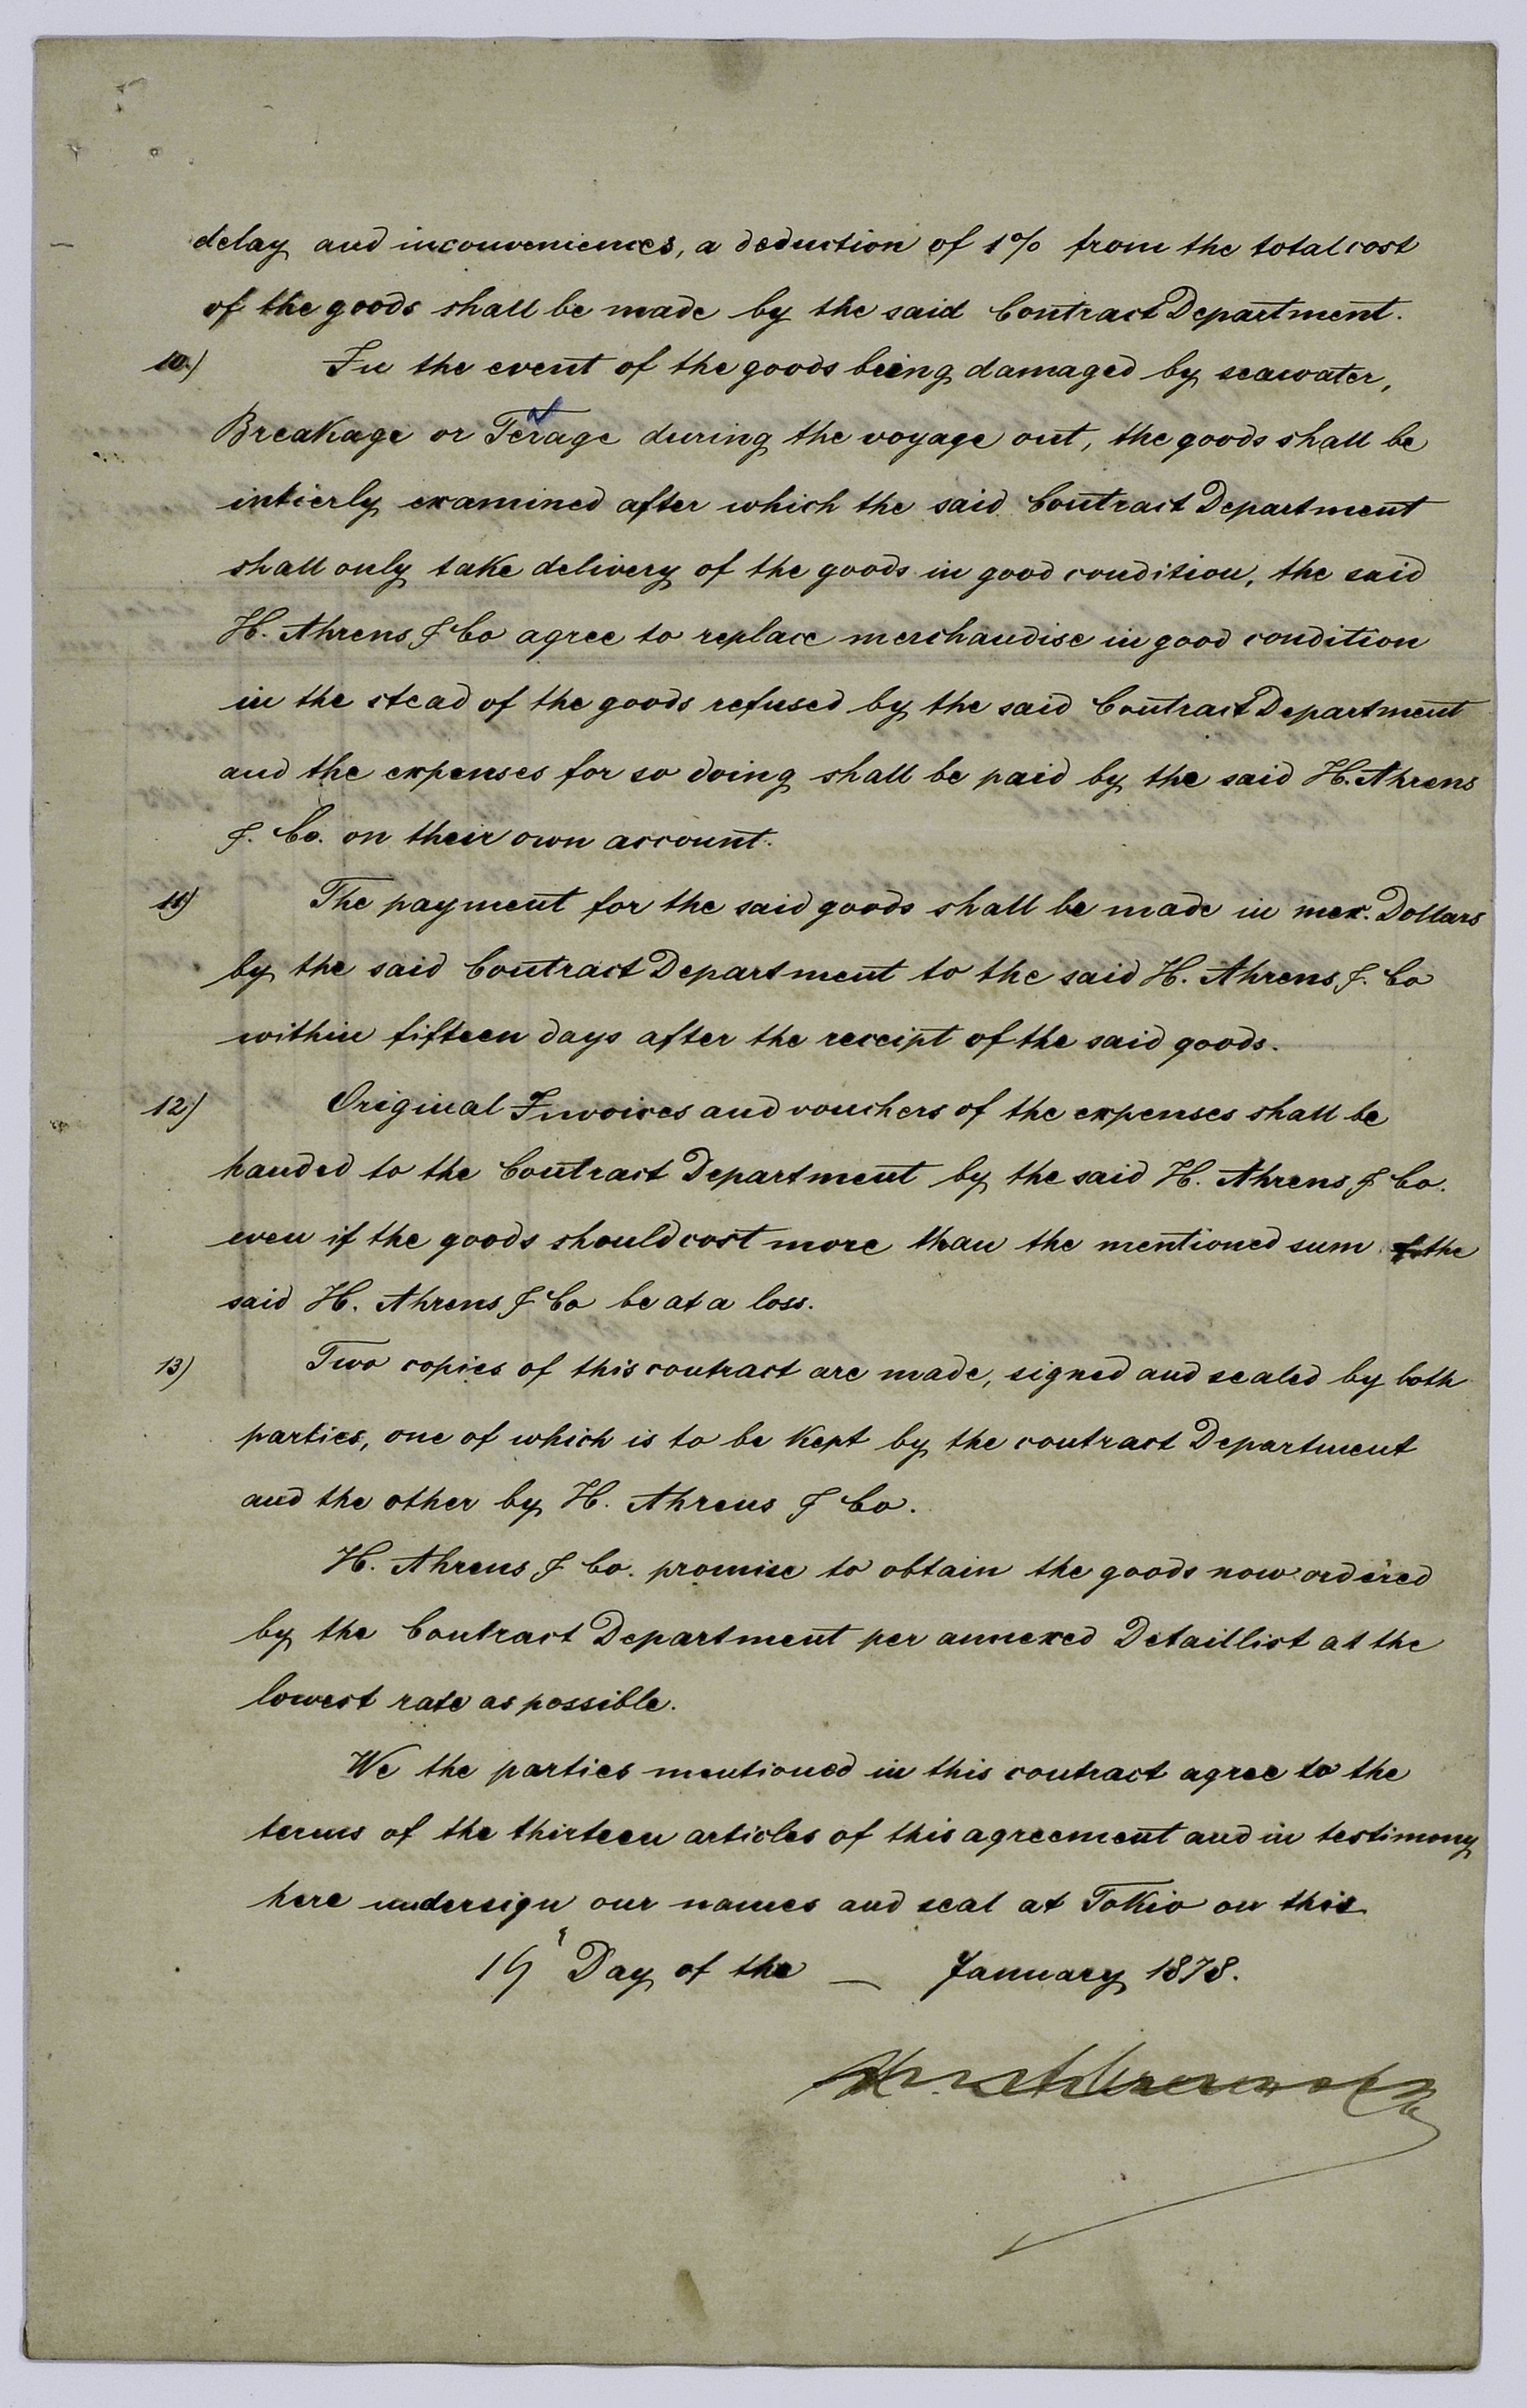 delay and inconveniences, a deduction of 1% from the total cost
of the goods shall be made by the said Contract Department.
10.) In the event of the goods being damaged by seawater,
Breakage or Terage during the voyage out, the goods shall be
intierly examined after which the said Contract Department
shall only take delivery of the goods in good condition, the said
H. Ahrens & Co agree to replace merchandise in good condition
in the stead of the goods refused by the said Contract Department
and the expenses for so doing shall be paid by the said H. Ahrens
&. Co. on their own account.
11) The payment for the said goods shall be made in mex. Dollars
by the said Contract Department to the said H. Ahrens &. Co
within fifteen days after the receipt of the said goods.
12.) Original Invoices and vouchers of the expenses shall be
handed to the Contract Department by the said H. Ahrens & Co.
even if the goods should cost more than the mentioned sum the
said H. Ahrens & Co be at a loss.
13) Two copies of this contract are made, signed and sealed by both
parties, one of which is to be kept by the contract Department
and the other by H. Ahrens & Co.
H. Ahrens & Co. promise to obtain the goods now ordered
by the Contract Department per annexed Detaillist at the
lowest rate as possible.
We the parties mentioned in this contract agree to the
terms of the thirteen articles of this agreement and in testimony
here undersign our names and seal at Tokio on this
Day of the — January 1878.